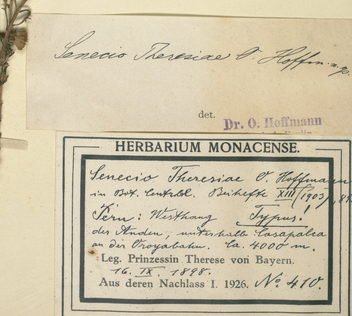 Senecio Theresiae O. Hoffm. n. sp.
det.
Dr. O. Hoffmann
HERBARIUM MONACENSE.
Senecio Theresiae O. Hoffmann
in Bot. Centrbl. Beihefte XIII/1903/
Peru: Westhang Typus!
der Anden, unterhalb Casapalca
an der Oroyabahn. Ca. 4000 m.
Leg. Prinzessin Therese von Bayern.
16. IX. 1898.
Aus deren Nachlass I. 1926. No 410.